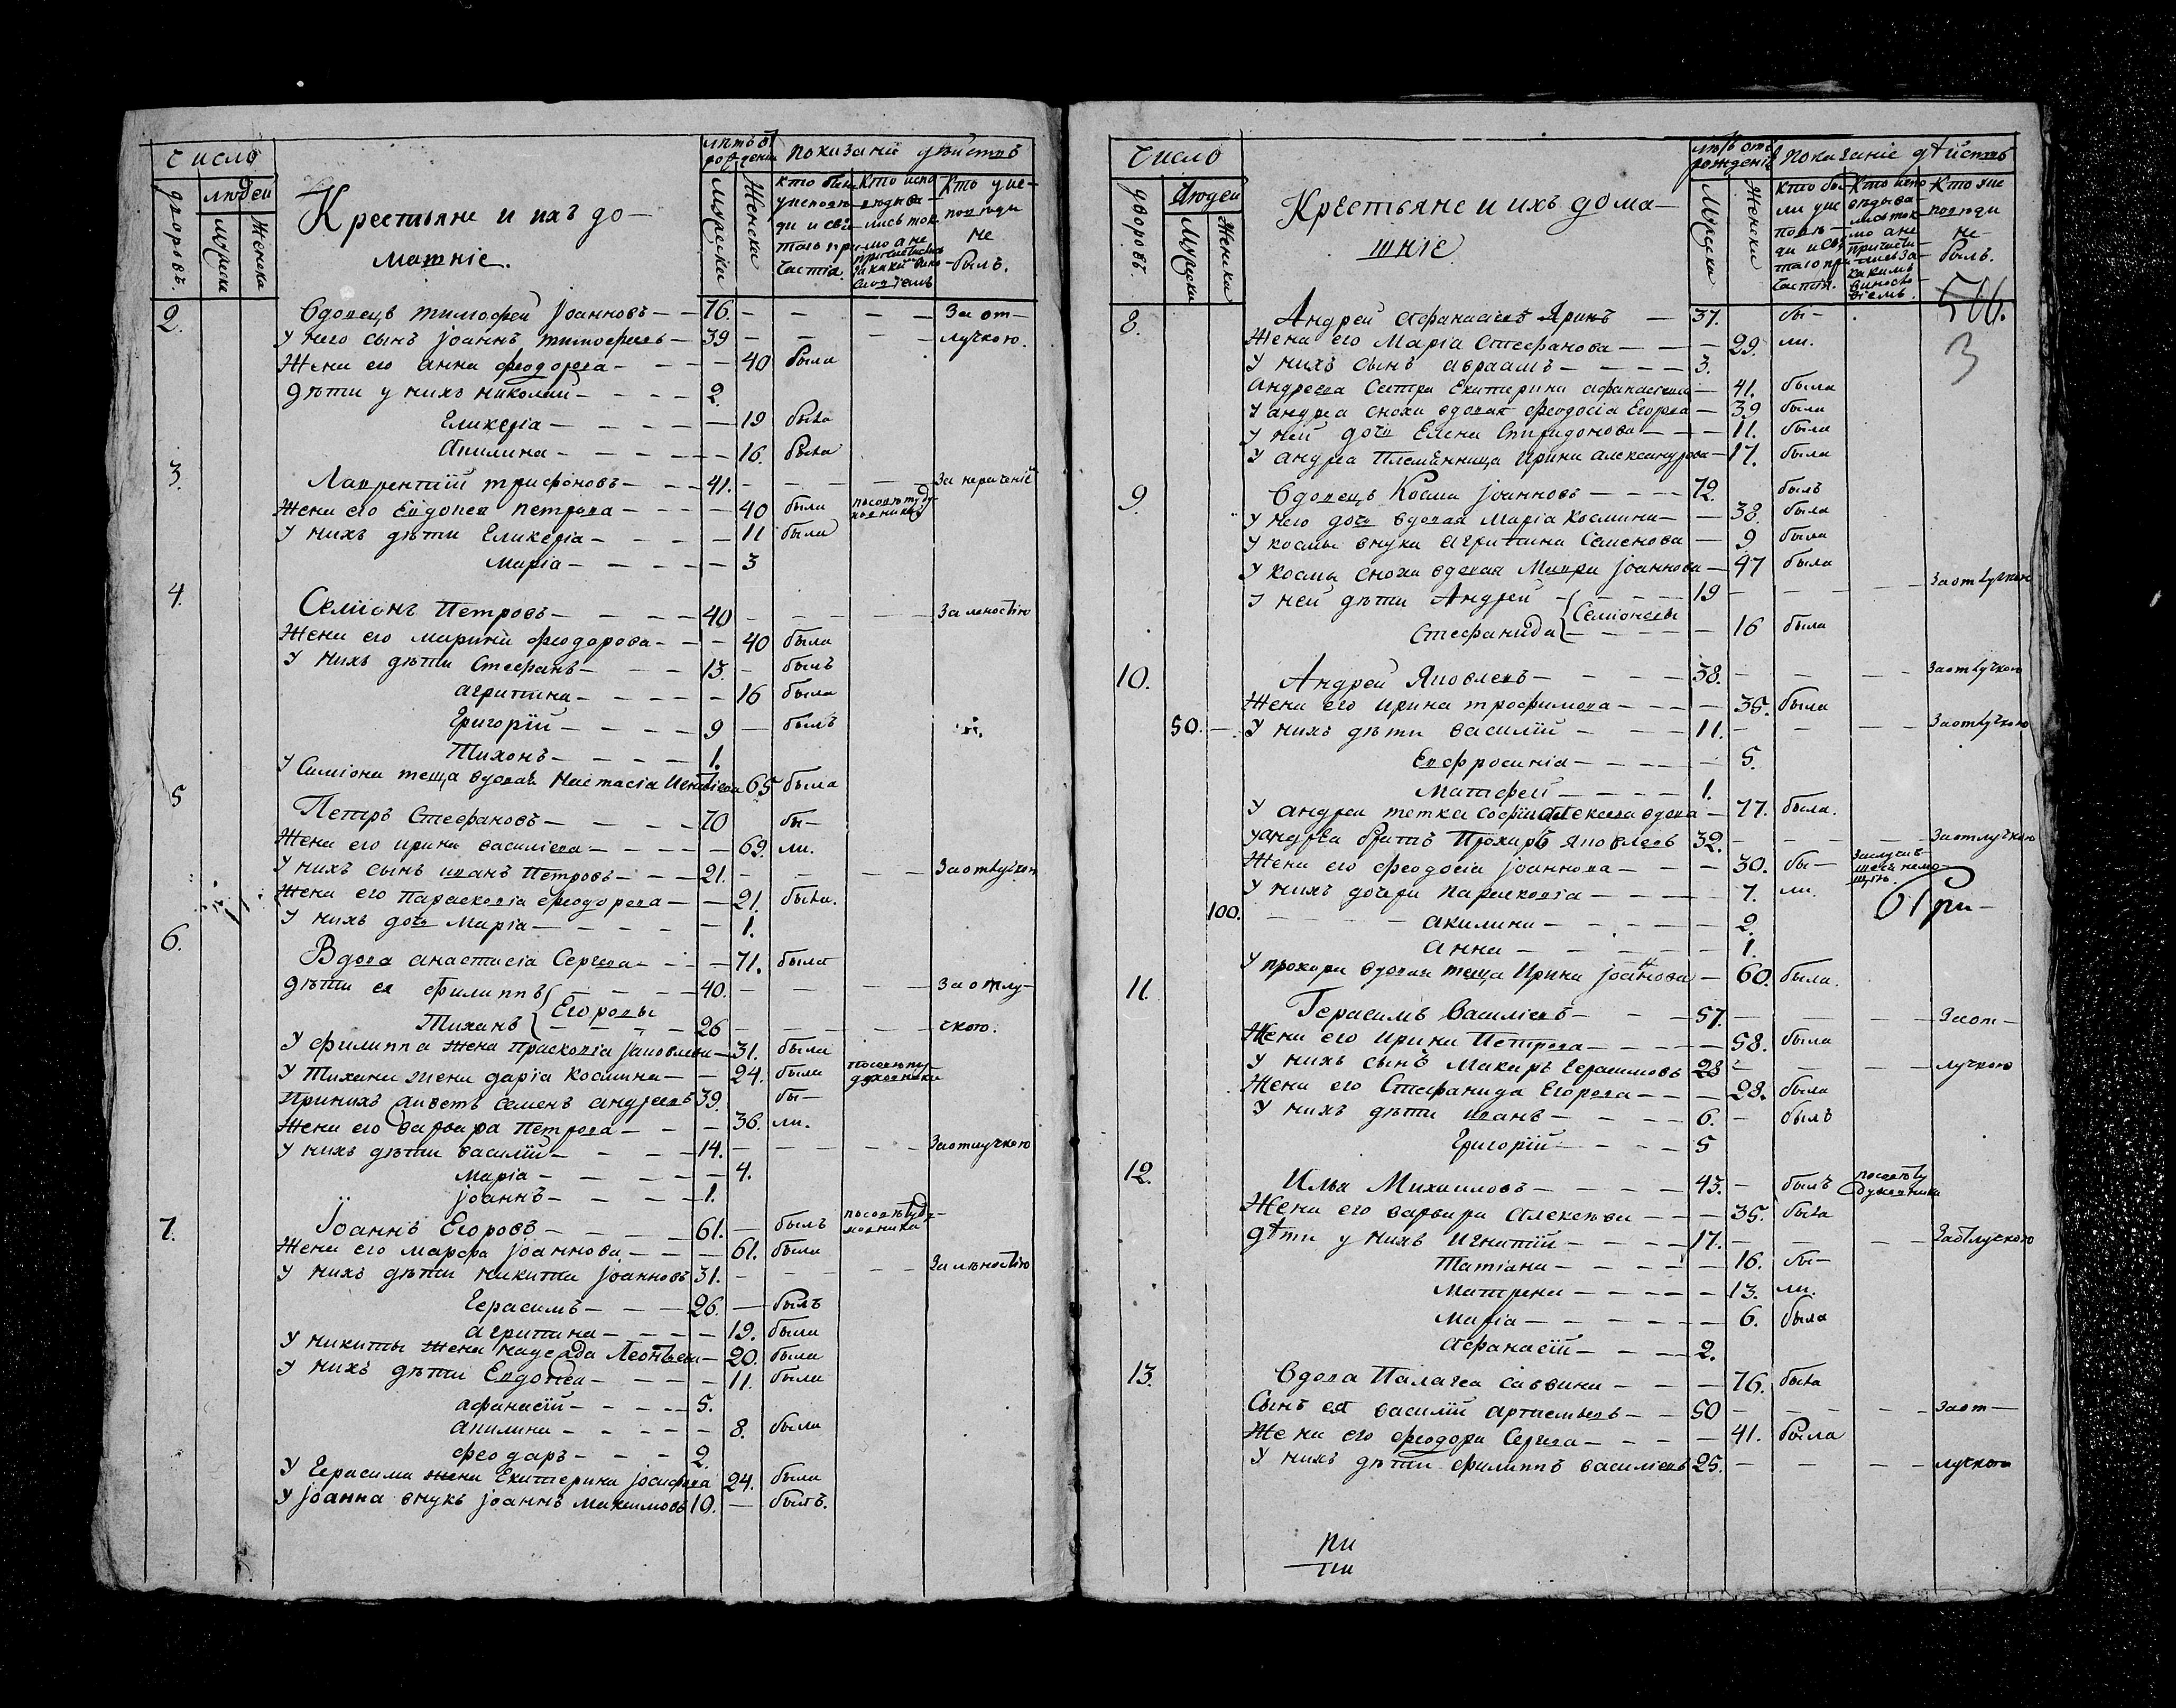 Число
людей
дворовъ.
Мужеска
Женска
Крестьяне и ихъ до-
машніе.
лѣтъ от рожденія
Мужеска
Женска
показаніе дѣйствъ
кто были
у исповѣ-
ди и свя-
таго при-
частія.
Кто испо-
вѣдыва-
лись ток
мо а не
причастились
за какимъ вино-
словіемъ
Кто у ис-
повѣди
не
былъ.
2. Вдовецъ тимофей Іоанновъ — 76. — — — За от-
У него сынъ Іоаннъ тимофеевъ — 39 — — — лучкою.
Жена его анна феодорова — — 40 была
дѣти у нихъ николай — 2.
Гликеріа — — 19 была
Акилина — — 16. была
3. Лаврентій трифоновъ — 41. — — — За нераченіе
Жена его Евдокеа петрова — — 40 была по совѣту ду-
ховника
У нихъ дѣти Гликеріа — — 11 была
маріа — — 3
4. Семіонъ Петровъ — 40 — — — За леностію
Жена его марина феодорова — — 40 была
У нихъ дѣти Стефанъ — 13. — былъ
агрипина — — 16 была
Григорій — 9 — былъ
Тихонъ — 1.
У Симіона теща вдова Настасіа 65 была
5 Петръ Стефановъ — 70 бы-
Жена его ирина василіева — — 69. ли.
У нихъ сынъ иванъ Петровъ — 21. — — — За отлучкою
Жена его Парасковіа феодорова — — 21. была.
У нихъ дочь Маріа — — 1.
6. Вдова анастасіа Сергеева — — 71. была
дѣти ея филиппъ 40. — — — За отлу-
Егоровы
Тиханъ 26 — — — чкою.
У филиппа жена Прасковіа Яковлева — 31. была
У Тихана жена даріа Космина — — 24. была по совѣту
духовника
При нихъ живетъ Семенъ андреевъ 39. бы-
Жена его варвара Петрова — — 36. ли.
У нихъ дѣти василій — 14. — — — За отлучкою
маріа — — 4.
Іоаннъ — 1.
7. Іоаннъ Егоровъ — 61. — былъ по совѣту ду-
ховника
Жена его марфа Іоаннова — — 61. была
У нихъ дѣти никита Іоанновъ 31. — — — За лѣностію
Герасимъ — 26. — былъ
агрипина — — 19. была
У никиты жена надежда Леонтьева — 20. была
У нихъ дѣти Евдокеа — — 11. была
афанасій — 5.
Акилина — — 8. была
феодаръ — 2.
У Герасима жена Екатерина Іосифова 24. была
У Іоанна внукъ Іоаннъ Максимовъ 10. — былъ.
Число
Людей
дворовъ.
Мужеска
Женска
Крестьяне и ихъ дома-
шніе
лѣтъ отъ
рожденія
Мужеска
Женска
показаніе дѣйствъ
Кто бы-
ли у ис
повѣ-
ди и свя
таго при
частія.
Кто испо
вѣдыва-
лись ток-
мо а не
причасти-
лись за
какимъ
виносло-
віемъ.
Кто у ис
повѣди
не-
былъ.
3
8. Андрей Афанасіевъ Яринъ — 37. бы-
Жена его Маріа Стефанова — — 29. ли.
У нихъ сынъ авраамъ — 3.
Андреева Сестра Екатерина афанасіева — 41. была
У андреа сноха вдовая феодосіа Егорова — 39 была
У ней дочь Елена Спиридонова — — 11. была
У андреа Племянница Ирина александрова — 17. была
9. Вдовецъ Косма Іоанновъ — 72. былъ
У него дочь вдовая Маріа Космина — — 38. была
У космы внука Агрипина Семенова — 9 была
У космы сноха вдовая Мавра Іоаннова — 47 была
У ней дѣти Андрей 19 — — — За отлучкою
Семіоновы
Стефанида — 16 была
10. Андрей Яковлевъ — 38. — — — За отлучкою
Жена его ирина трофимова — — 35. была
50. У нихъ дѣти василій — 11. — — — За отлучкою
Евфросиніа — 5.
Матфей — 1.
У андреа тетка софіа Алексеева вдова — 77. была.
У андреа братъ Прохиръ Яковлевъ 32. — — — За отлучкою
Жена его феодосіа Іоаннова — — 30. бы- За случив-
шеюся немо-
щію.
У нихъ дочери параскевіа — 7. ли.
100. акилина — 2.
анна — 1.
У прохора вдовая теща Ирина Іоаннова — 60. была.
11. Герасимъ Василіевъ — 57. — — За от-
Жена его Ирина Петрова — — 58. была
У нихъ сынъ Макаръ Герасимовъ 28 — — — лучкою
Жена его Стефанида Егорова — — 28. была
У нихъ дѣти иванъ — 6. — былъ
Григорій — 5
12. Илья Михаиловъ — 43. — былъ по совѣту
духовника
Жена его варвара Алексеева — — 35. была
дѣти у нихъ Игнатій — 17. — — — За отлучкою
Татіана — — 16. бы-
Матрена — — 13. ли.
Маріа — — 6. была
Афанасій — 2.
13. Вдова Палагеа саввина — — 76. была
Сынъ ея василій артемьевъ — 50 — — — За от-
Жена его феодора Сергеева — — 41. была
У нихъ дѣти филиппъ василіевъ 25. — — — лучкою